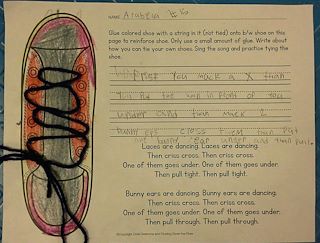 NAME Arabella #15
Glue colored shoe with a string in it (not tied) onto b/w shoe on this
page to reinforce shoe. Only use a small amount of glue. Write about
how you can tie your own shoes. Sing the song and practice tying the
shoe.
you mack a X than
you the in front of you
under and than mack 2
bunny ers cross them then put
one bunny ear under and then pull.
Laces are dancing. Laces are dancing.
Then criss cross. Then criss cross.
One of them goes under. One of them goes under.
Then pull tight. Then pull tight.
Bunny ears are dancing. Bunny ears are dancing.
Then criss cross. Then criss cross.
One of them goes under. One of them goes under.
Then pull through. Then pull through.